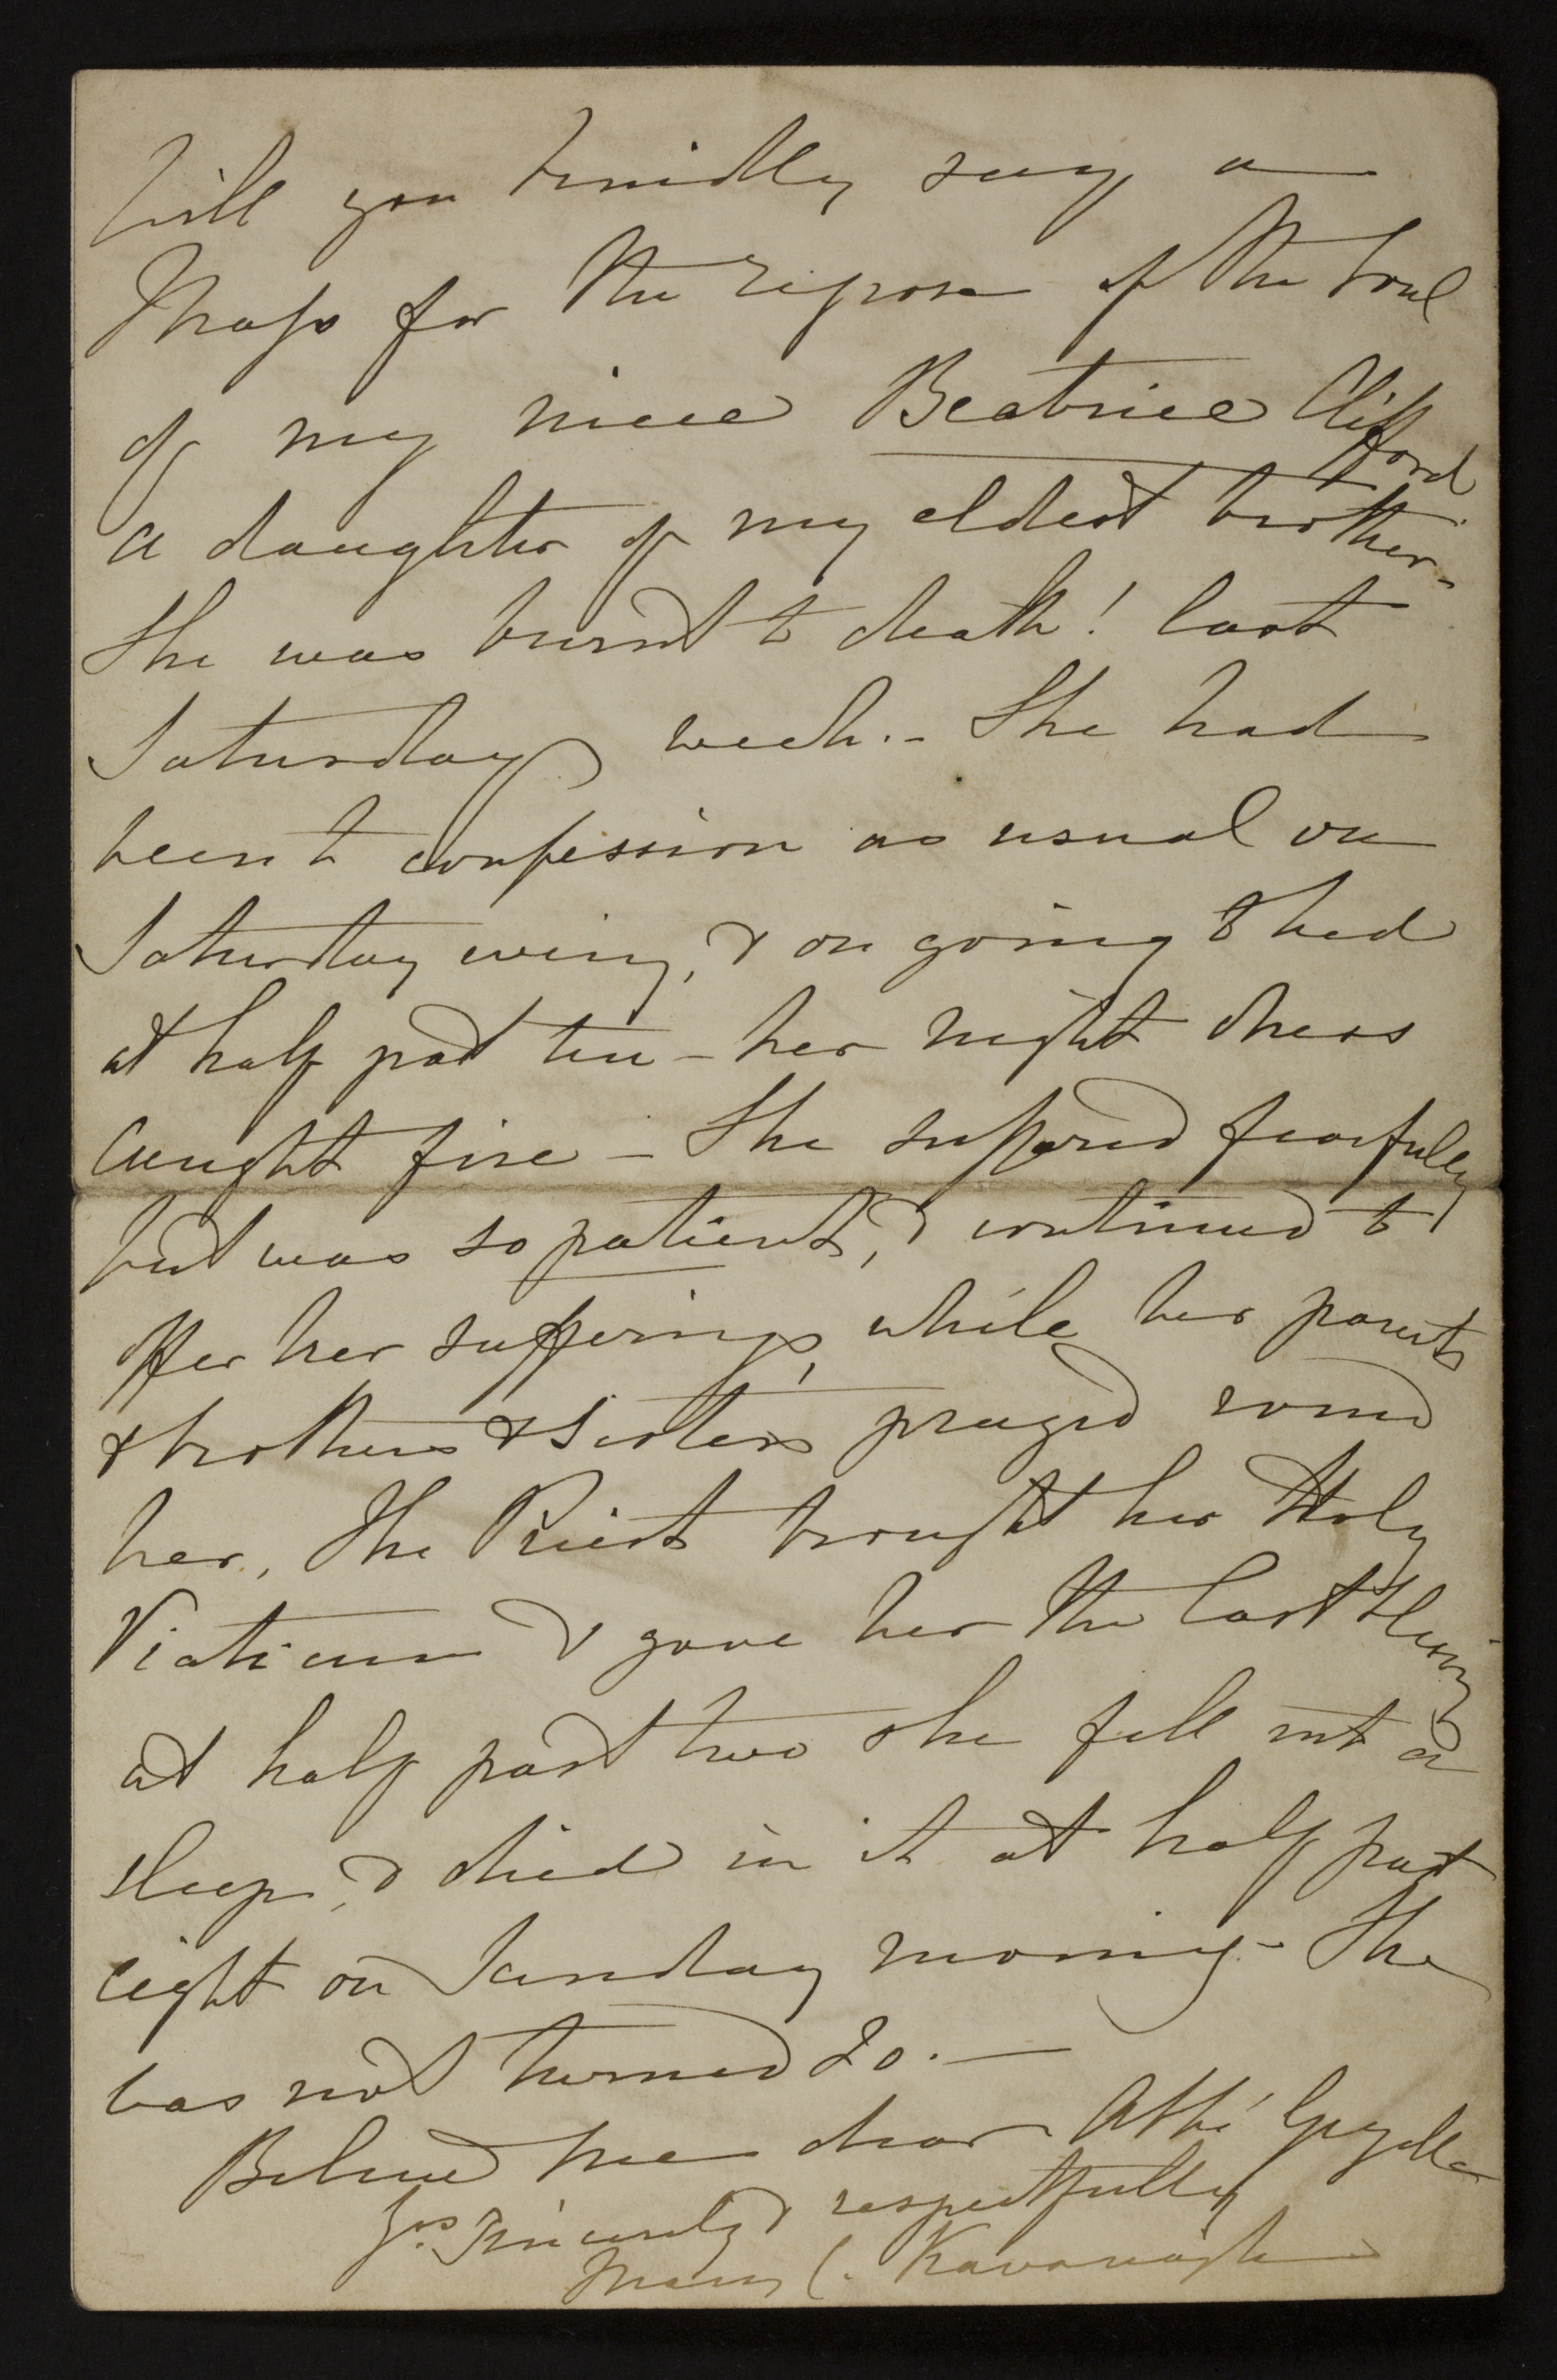 Will you kindly say a
Mass for the repose of the Soul
of my niece Beatrice Clifford
a daughter of my eldest brother -
She was burnt to death! last
Saturday week. - She had
been to confession as usual on
Saturday eveing, & on going to bed
at half past ten - her night dress
Caught fire - She suffered fearfully
but was so patient, & continued to
offer her sufferings, while her parents
& brothers & Sisters prayed round
her, The Priest brought her Holy
Viaticum & gave her the last blessing
at half past two she fell into a
sleep, & died in it at half past
eight on Sunday morning - She
was not turned 20. -
Believe me dear Abbé
Yrs. Sincerely & respectfully
Mary C. Kavanagh